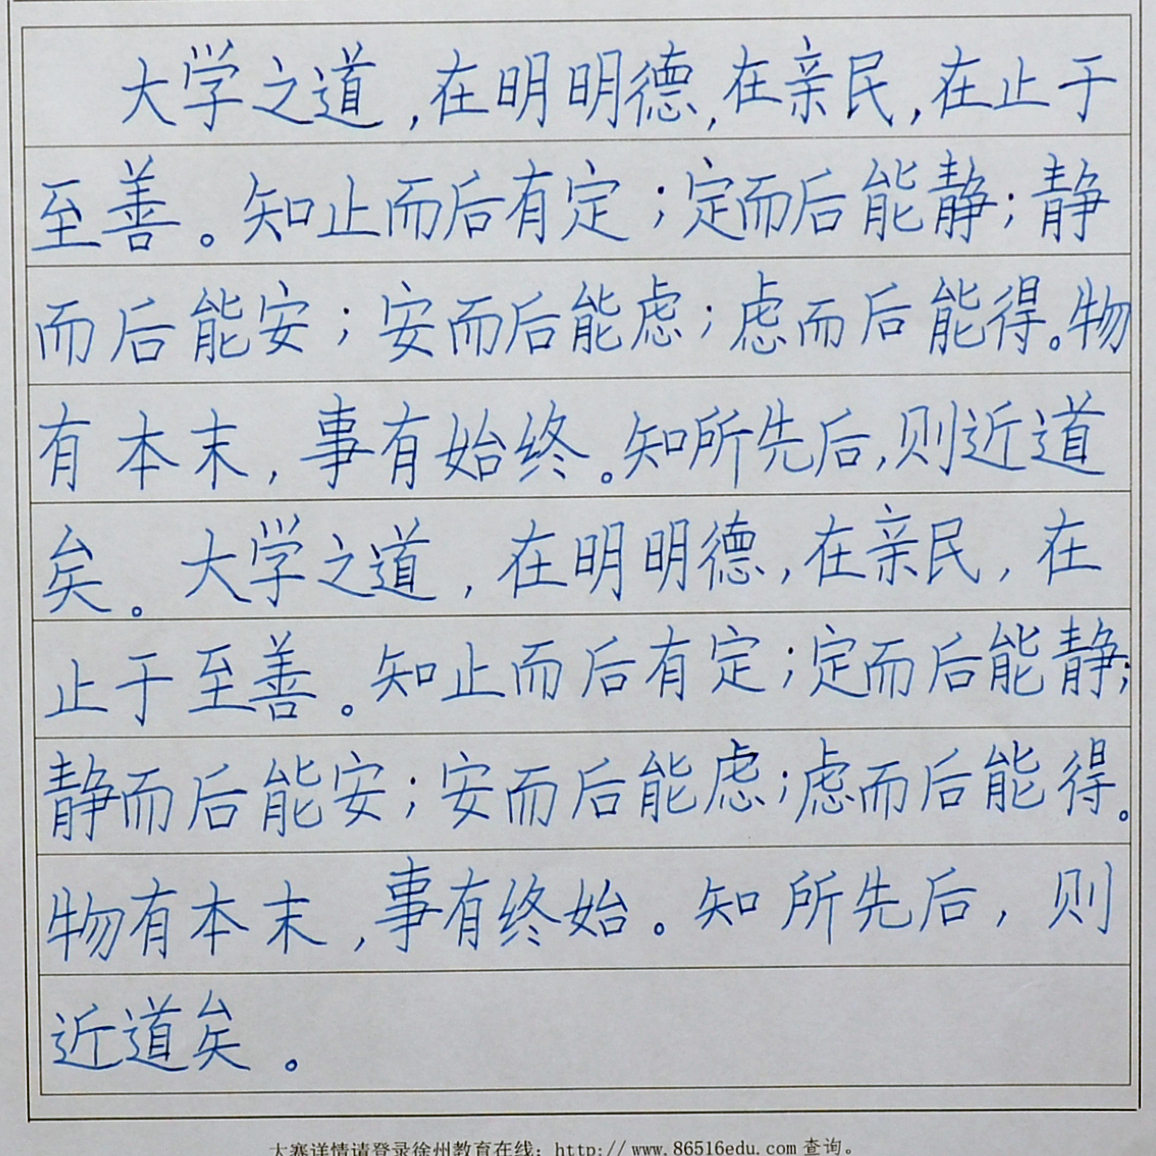 大学之道,在明明德,在亲民,在止于
至善。知止而后有定;定而后能静;静
而后能安;安而后能虑;虑而后能得。物
有本末,事有始终。知所先后,则近道
矣。大学之道,在明明德,在亲民,在
止于至善。知止而后有定;定而后能静;
静而后能安;安而后能虑;虑而后能得。
物有本末,事有终始。知所先后,则
近道矣。
大赛详情请登录徐州教育在线:http://www.86516edu.com查询。